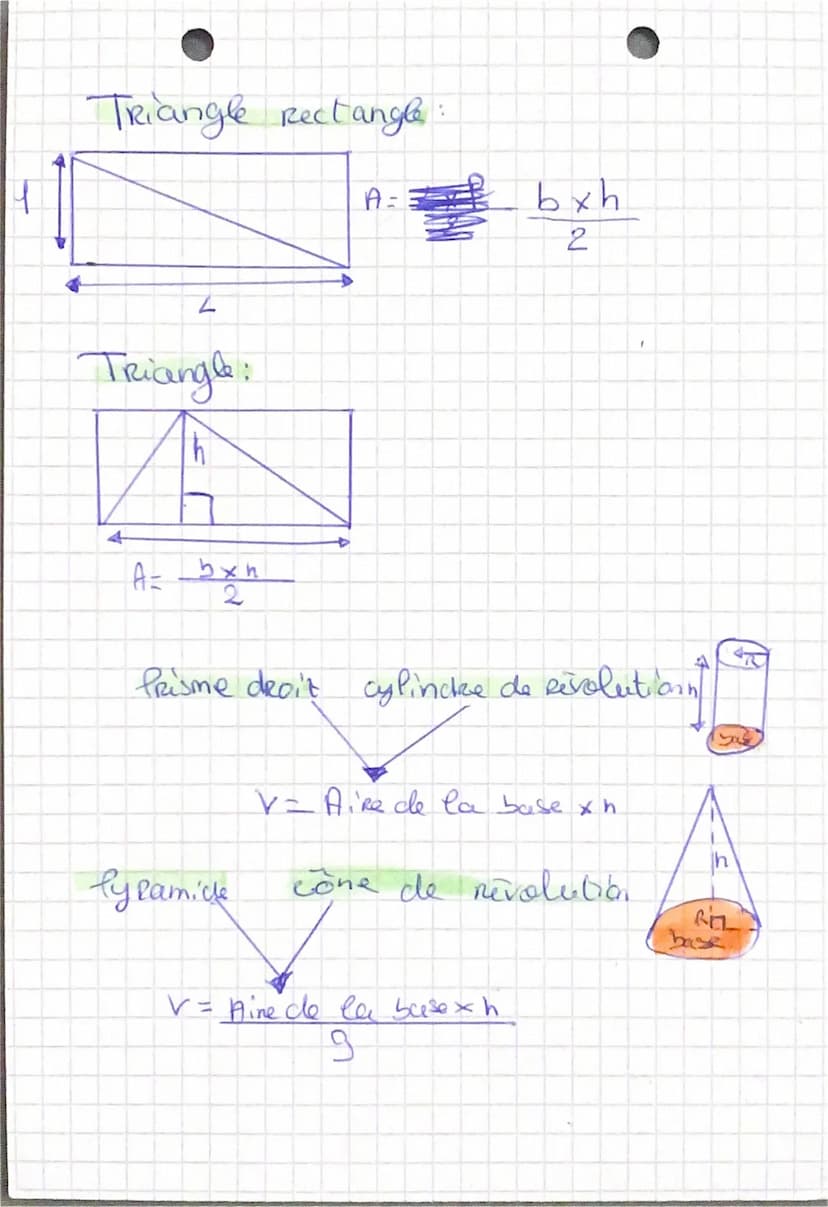 Triangle rectangle:
l
A = b x h
2
L
Triangle:
h
A = b x h
2
Prisme droit cylindre de révolution h
R
base
V = Aire de la base x h
h
Pyramide cône de révolution
R
base
V = Aire de la base x h